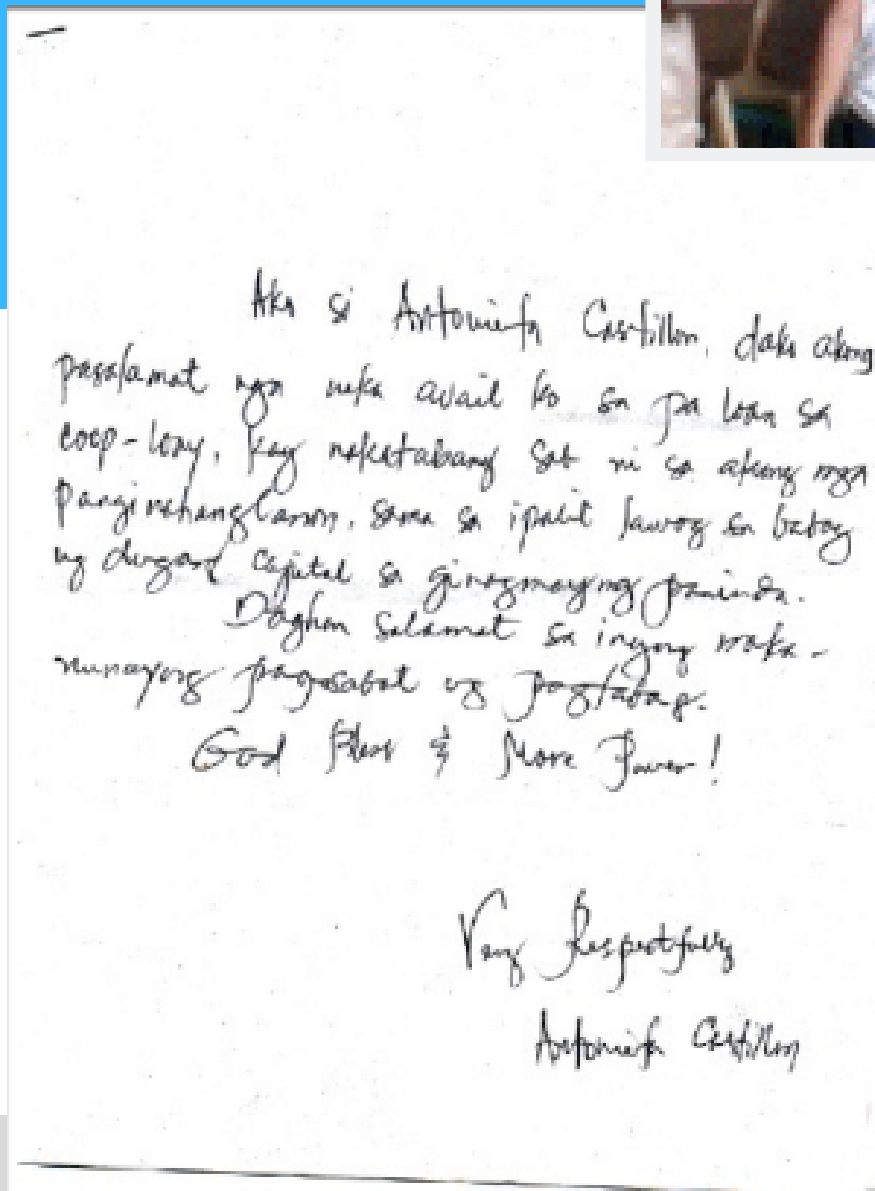 Ako si Antonieta Castillon, dako akong
pasalamat nga naka avail ko sa pa loan sa
coop-loay, kay nakatabang sab ni sa akong mga
panginahanglanon, sama sa ipalit lawog sa baboy
ug dugang capital sa ginagmayng paninda.
Daghan salamat sa inyong maka-
nunayong pagsabot ug pagtabang.
God Bless & More Power!
Very Respectfully
Antonieta Castillon